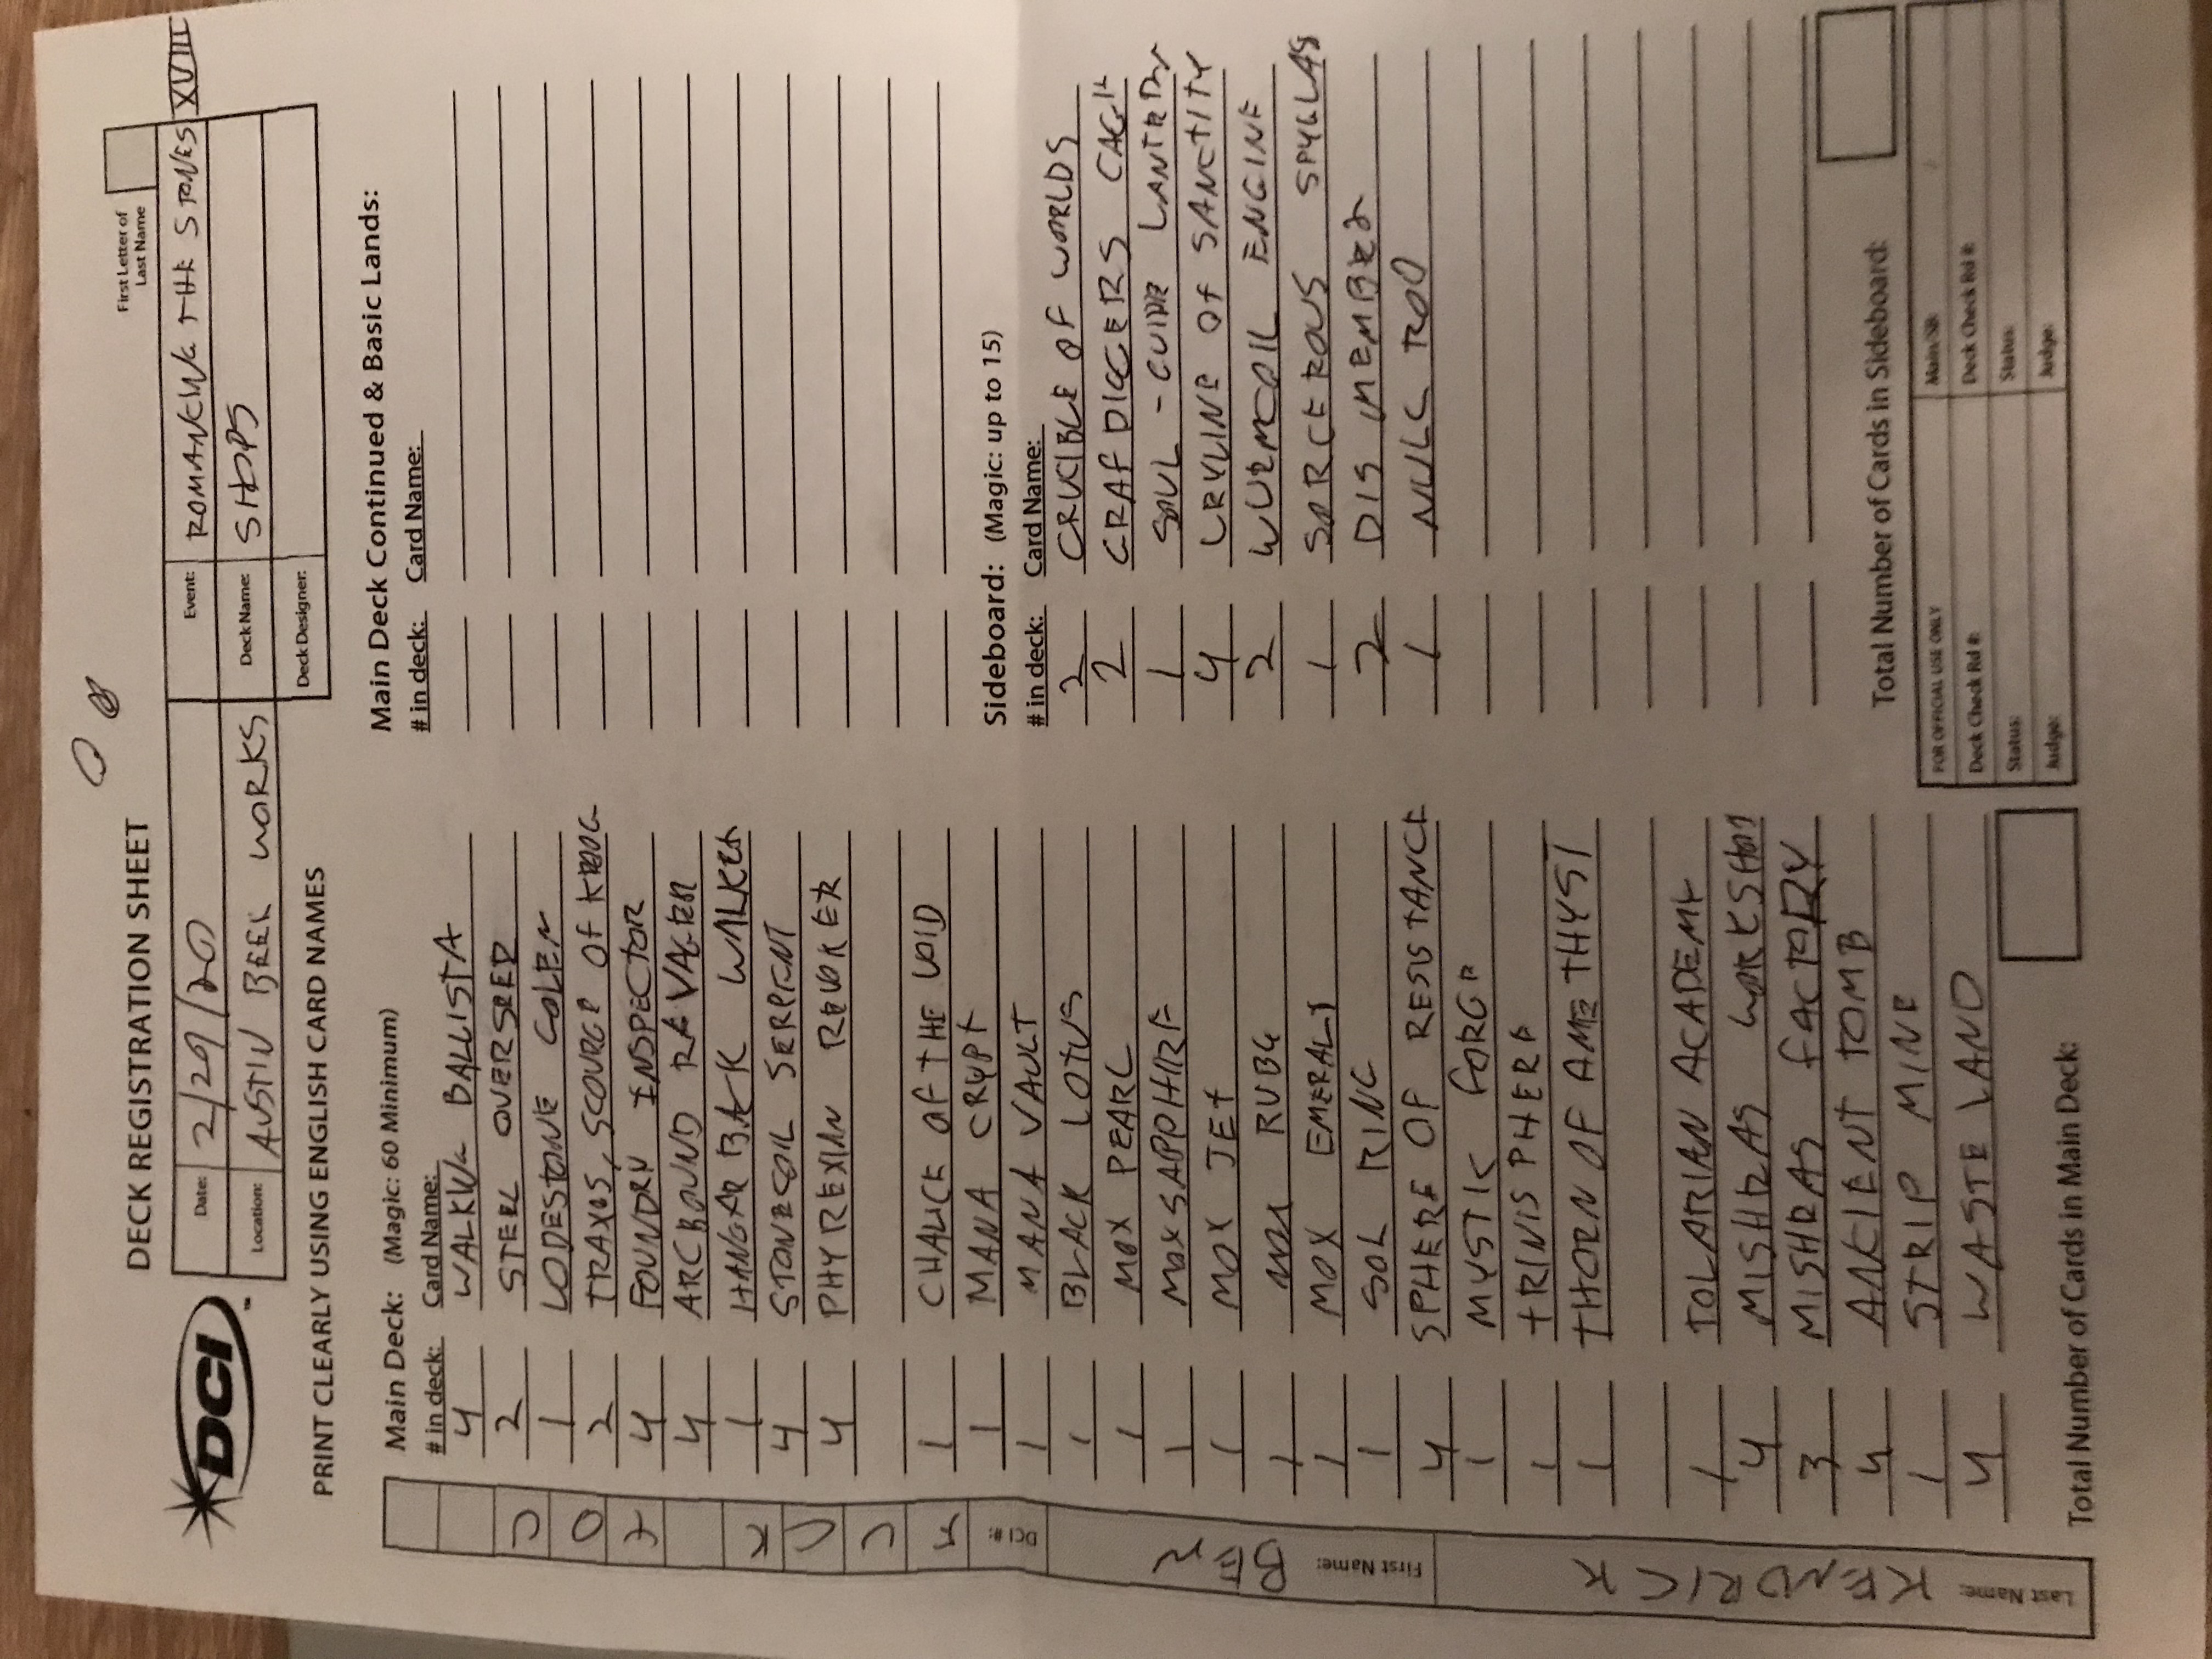 DECK REGISTRATION SHEET
First Letter of
Last Name
DCI
™
Date: 2/29/20
Event: ROMANCING THE STONES XVIII
Location: AUSTIN BEER WORKS
Deck Name: SHOPS
Deck Designer:
PRINT CLEARLY USING ENGLISH CARD NAMES
Last Name: KENDRICK First Name: BEN DCI #: FUCK YOU
Main Deck: (Magic: 60 Minimum)
# in deck: Card Name:
4 WALKING BALLISTA
2 STEEL OVERSEER
1 LODESTONE GOLEM
2 TRAXOS, SCOURGE OF KROOG
4 FOUNDRY INSPECTOR
4 ARCBOUND RAVAGER
1 HANGARBACK WALKER
4 STONECOIL SERPENT
4 PHYREXIAN REVOKER
1 CHALICE OF THE VOID
1 MANA CRYPT
1 MANA VAULT
1 BLACK LOTUS
1 MOX PEARL
1 MOX SAPPHIRE
1 MOX JET
1 MOX RUBY
1 MOX EMERALD
1 SOL RING
4 SPHERE OF RESISTANCE
1 MYSTIC FORGE
1 TRINISPHERE
1 THORN OF AMETHYST
1 TOLARIAN ACADEMY
4 MISHRAS WORKSHOP
3 MISHRAS FACTORY
4 ANCIENT TOMB
1 STRIP MINE
4 WASTELAND
Total Number of Cards in Main Deck:
Main Deck Continued & Basic Lands:
# in deck: Card Name:
Sideboard: (Magic: up to 15)
# in deck: Card Name:
2 CRUCIBLE OF WORLDS
2 GRAFDIGGERS CAGE
1 SOUL-GUIDE LANTERN
4 LEYLINE OF SANCTITY
2 WURMCOIL ENGINE
1 SORCEROUS SPYGLASS
2 DISMEMBER
1 NULL ROD
Total Number of Cards in Sideboard:
FOR OFFICIAL USE ONLY Main/SB:
Deck Check Rd #: Deck Check Rd #:
Status: Status:
Judge: Judge: